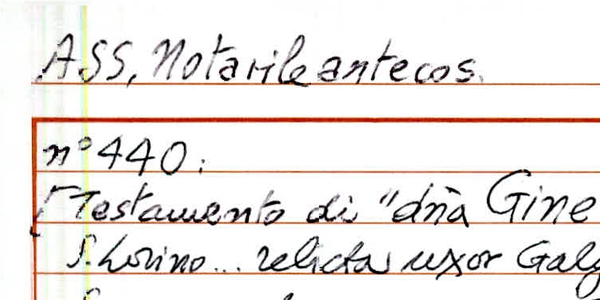 ASS, Notarile antecos.
n° 440:
[Testamento di "dña Gine
S. Lorino... relicta uxor Galg